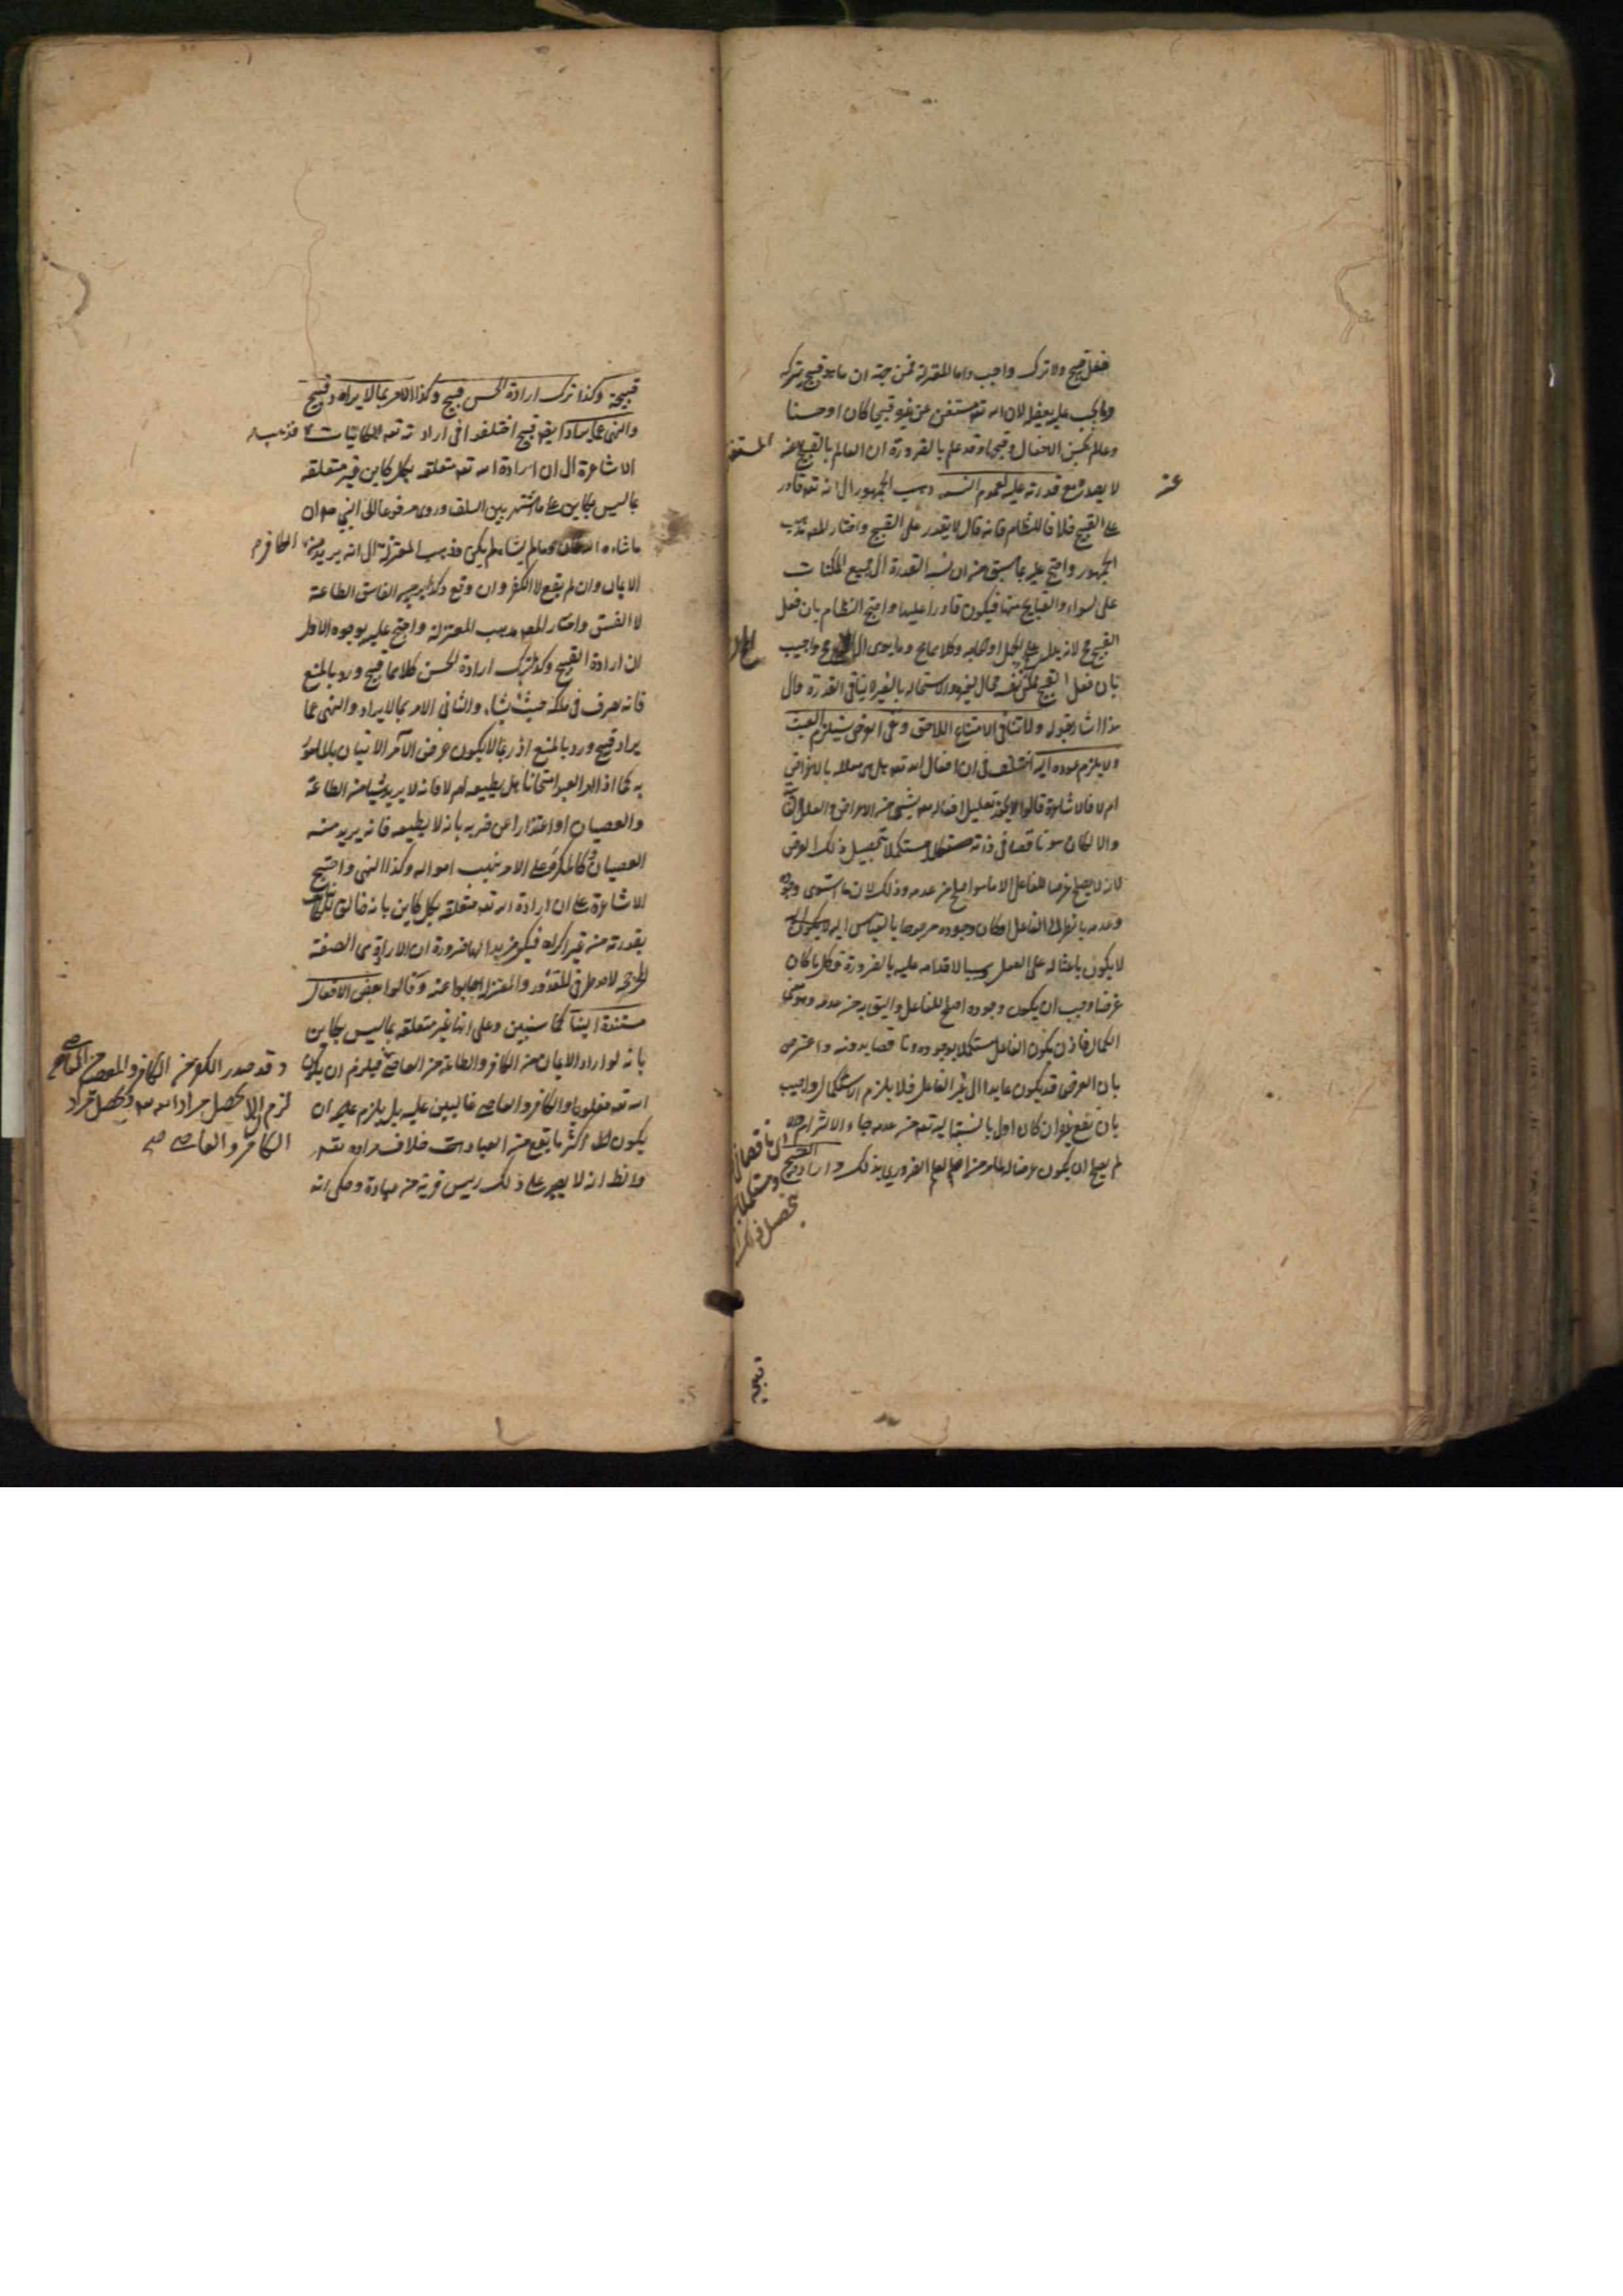 فعل قبيح ولا ترك واجب واما المعتزلة فمن جهة ان ما هو قبيح يتركه
وما يجب عليه يفعله لان الله تعه مستغن عن غيره قبيحا كان او حسنا
وعالم بحسن الافعال وقبحها وقد علم بالضرورة ان العالم بالقبيح المستغنى
عنه
لا يصدر مع قدرته عليه لعموم النسبه ذهب الجمهور الى انه تعه قادر
على القبيح خلافا للنظام فانه قال لا يقدر على القبيح واختار المصه مذهب
الجمهور واحتج عليه بما سبق من ان نسبه القدرة الى جميع الممكنات
على السواء والقبايح منها فيكون قادرا عليها واحتج النظام بان فعل
القبيح مح لانه يدل على الجهل او الحاجه وكلاهما مح وما يؤدى الى المح مح واجيب
بان فعل القبيح ممكن لنفسه محال لغيره والاستحاله بالغير لا ينافى القدرة والى
هذا اشار بقوله ولا تنافى الامتناع اللاحق ونفى الغرض يستلزم العبث
ولا يلزم عوده اليه اختلف فى ان افعال الله تعه هل هى معللة بالاغراض
ام لا فالاشاعرة قالوا لا يجوز تعليل افعاله تعه بشىء من الاغراض والعلل
والا لكان هو ناقصا فى ذاته مستكملا بتحصيل ذلك الغرض
لانه لا يصلح غرضا للفاعل الا ما هو اصلح من عدمه وذلك لان ما استوى وجوده
وعدمه بالنظر الى الفاعل او كان وجوده مرجوحا بالقياس اليه
لا يكون باعثا له على الفعل وسببا لاقدامه عليه بالضرورة فكل ما كان
غرضا وجب ان يكون وجوده اصلح للفاعل واليق به من عدمه وهو معنى
الكمال فاذن يكون الفاعل مستكملا بوجوده وناقصا بدونه واعترض
بان الغرض قد يكون عايدا الى غير الفاعل فلا يلزم الاستكمال واجيب
بان نفع غيره ان كان اولى بالنسبة اليه تعه من عدمه جاء الالزام
لم يصلح ان يكون غرضا له للعلم الضرورى بذلك وارادة القبيح
قبيحة وكذا ترك ارادة الحسن قبيح وكذا الامر بما لا يراد قبيح
والنهى عما يراد ايضه قبيح اختلفوا فى ارادته تعه للكائنات فذهب
الاشاعرة الى ان ارادة الله تعه متعلقه بكل كاين غير متعلقه
بما ليس بكاين على ما اشتهر بين السلف وروى مرفوعا الى النبى ان
ما شاء الله كان وما لم يشاء لم يكن وذهب المعتزلة الى انه يريد من الكافر
الايمان وان لم يقع لا الكفر وان وقع وكذا يريد من الفاسق الطاعة
لا الفسق واختار المصه مذهب المعتزلة واحتج عليه بوجوه الاول
ان ارادة القبيح وكذا ترك ارادة الحسن كلاهما قبيح ورد بالمنع
فانه تصرف فى ملكه حيث يشاء والثانى الامر بما لا يراد والنهى عما
يراد قبيح ورد بالمنع اذ ربما لا يكون غرض الآمر الاتيان بالمامور
به كما اذا امر العبد امتحانا هل يطيعه ام لا فانه لا يريد شيئا من الطاعة
والعصيان او اعتذارا عن ضربه بانه لا يطيعه فانه يريد منه
العصيان وكالمكره على الامر بنهب امواله وكذا النهى واحتج
الاشاعرة على ان ارادة الله تعه متعلقه بكل كاين بانه خالق
بقدرته من غير اكراه فيكون مريدا لها ضرورة ان الارادة هى الصفة
المرجحه لاحد طرفى المقدور والمعتزلة اجابوا عنه وقالوا بعض الافعال
مستندة الينا كما سنبين وعلى انها غير متعلقه بما ليس بكاين
بانه لو اراد الايمان من الكافر والطاعة من العاصى فيلزم ان يكون
وقد صدر الكفر من الكافر والمعصية من العاصى
لزم ان لا يحصل مراد الله تعه ويحصل مراد
الكافر والعاصى
الله تعه مغلوبا والكافر والعاصى غالبين عليه بل يلزم عليه ان
يكون اكثر ما يقع من العباد خلاف مراده تعه
والظ انه لا يصبر على ذلك رييس قرية من عباده وحكى انه